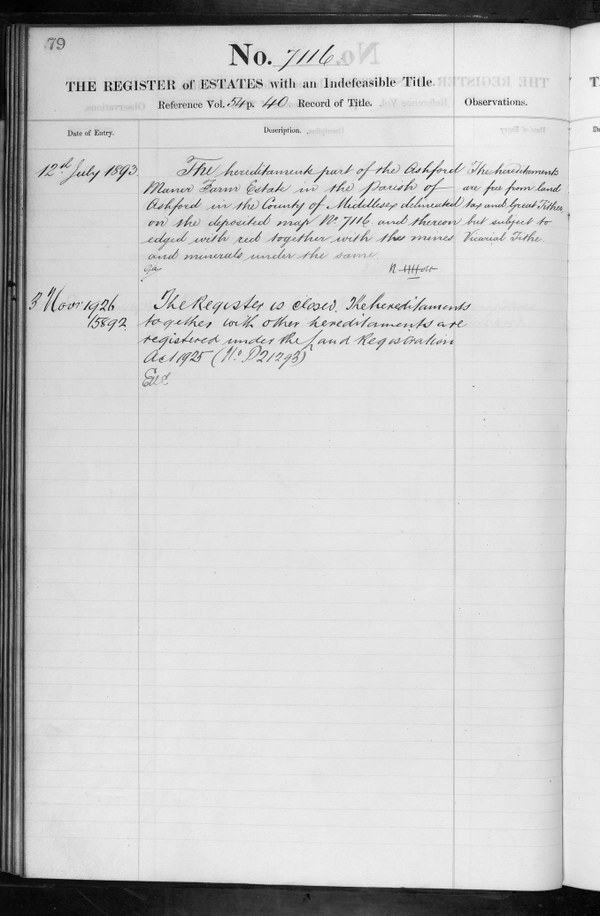 79
No. 7116
THE REGISTER of ESTATES with an Indefeasible Title.
Reference Vol. 54 p. 40 Record of Title.
Observations.
Date of Entry.
Description.
12th July 1893
The hereditaments part of the Ashford
Manor Farm Estate in the Parish of
Ashford in the County of Middlesex delineated
on the deposited map No. 7116 and thereon
edged with red together with the mines
and minerals under the same
The hereditaments
are free from land
tax and Great Tithes
but subject to
Vicarial Tithe
3 Novr 1926
15892
The Register is closed. The hereditaments
together with other hereditaments are
registered under the Land Registration
Act 1925 (No. P21293)